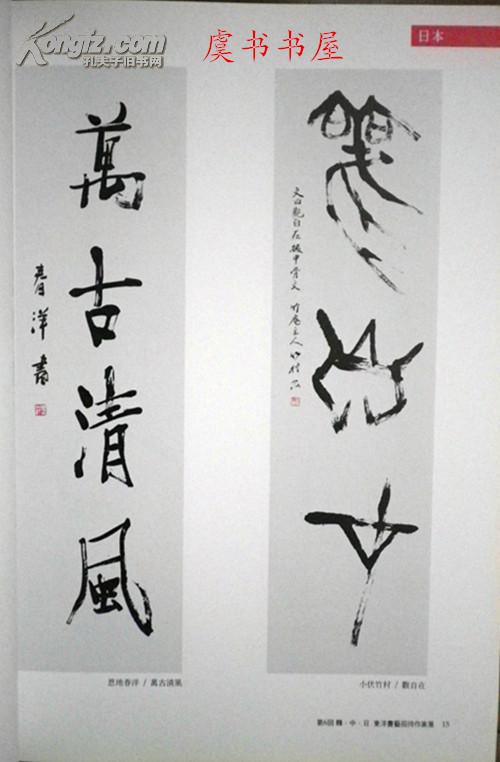 Kongfz.com
孔夫子旧书网
虞书书屋
日本
觀自在
文曰觀自在擬甲骨文
萬古清風
春洋書
小伏竹村 / 觀自在
恩地春洋 / 萬古清風
第6回 韓·中·日 東洋書藝招待作家展 15